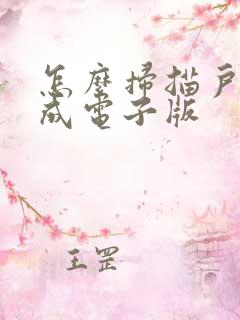 怎麼掃描戶
成電子版
王罡